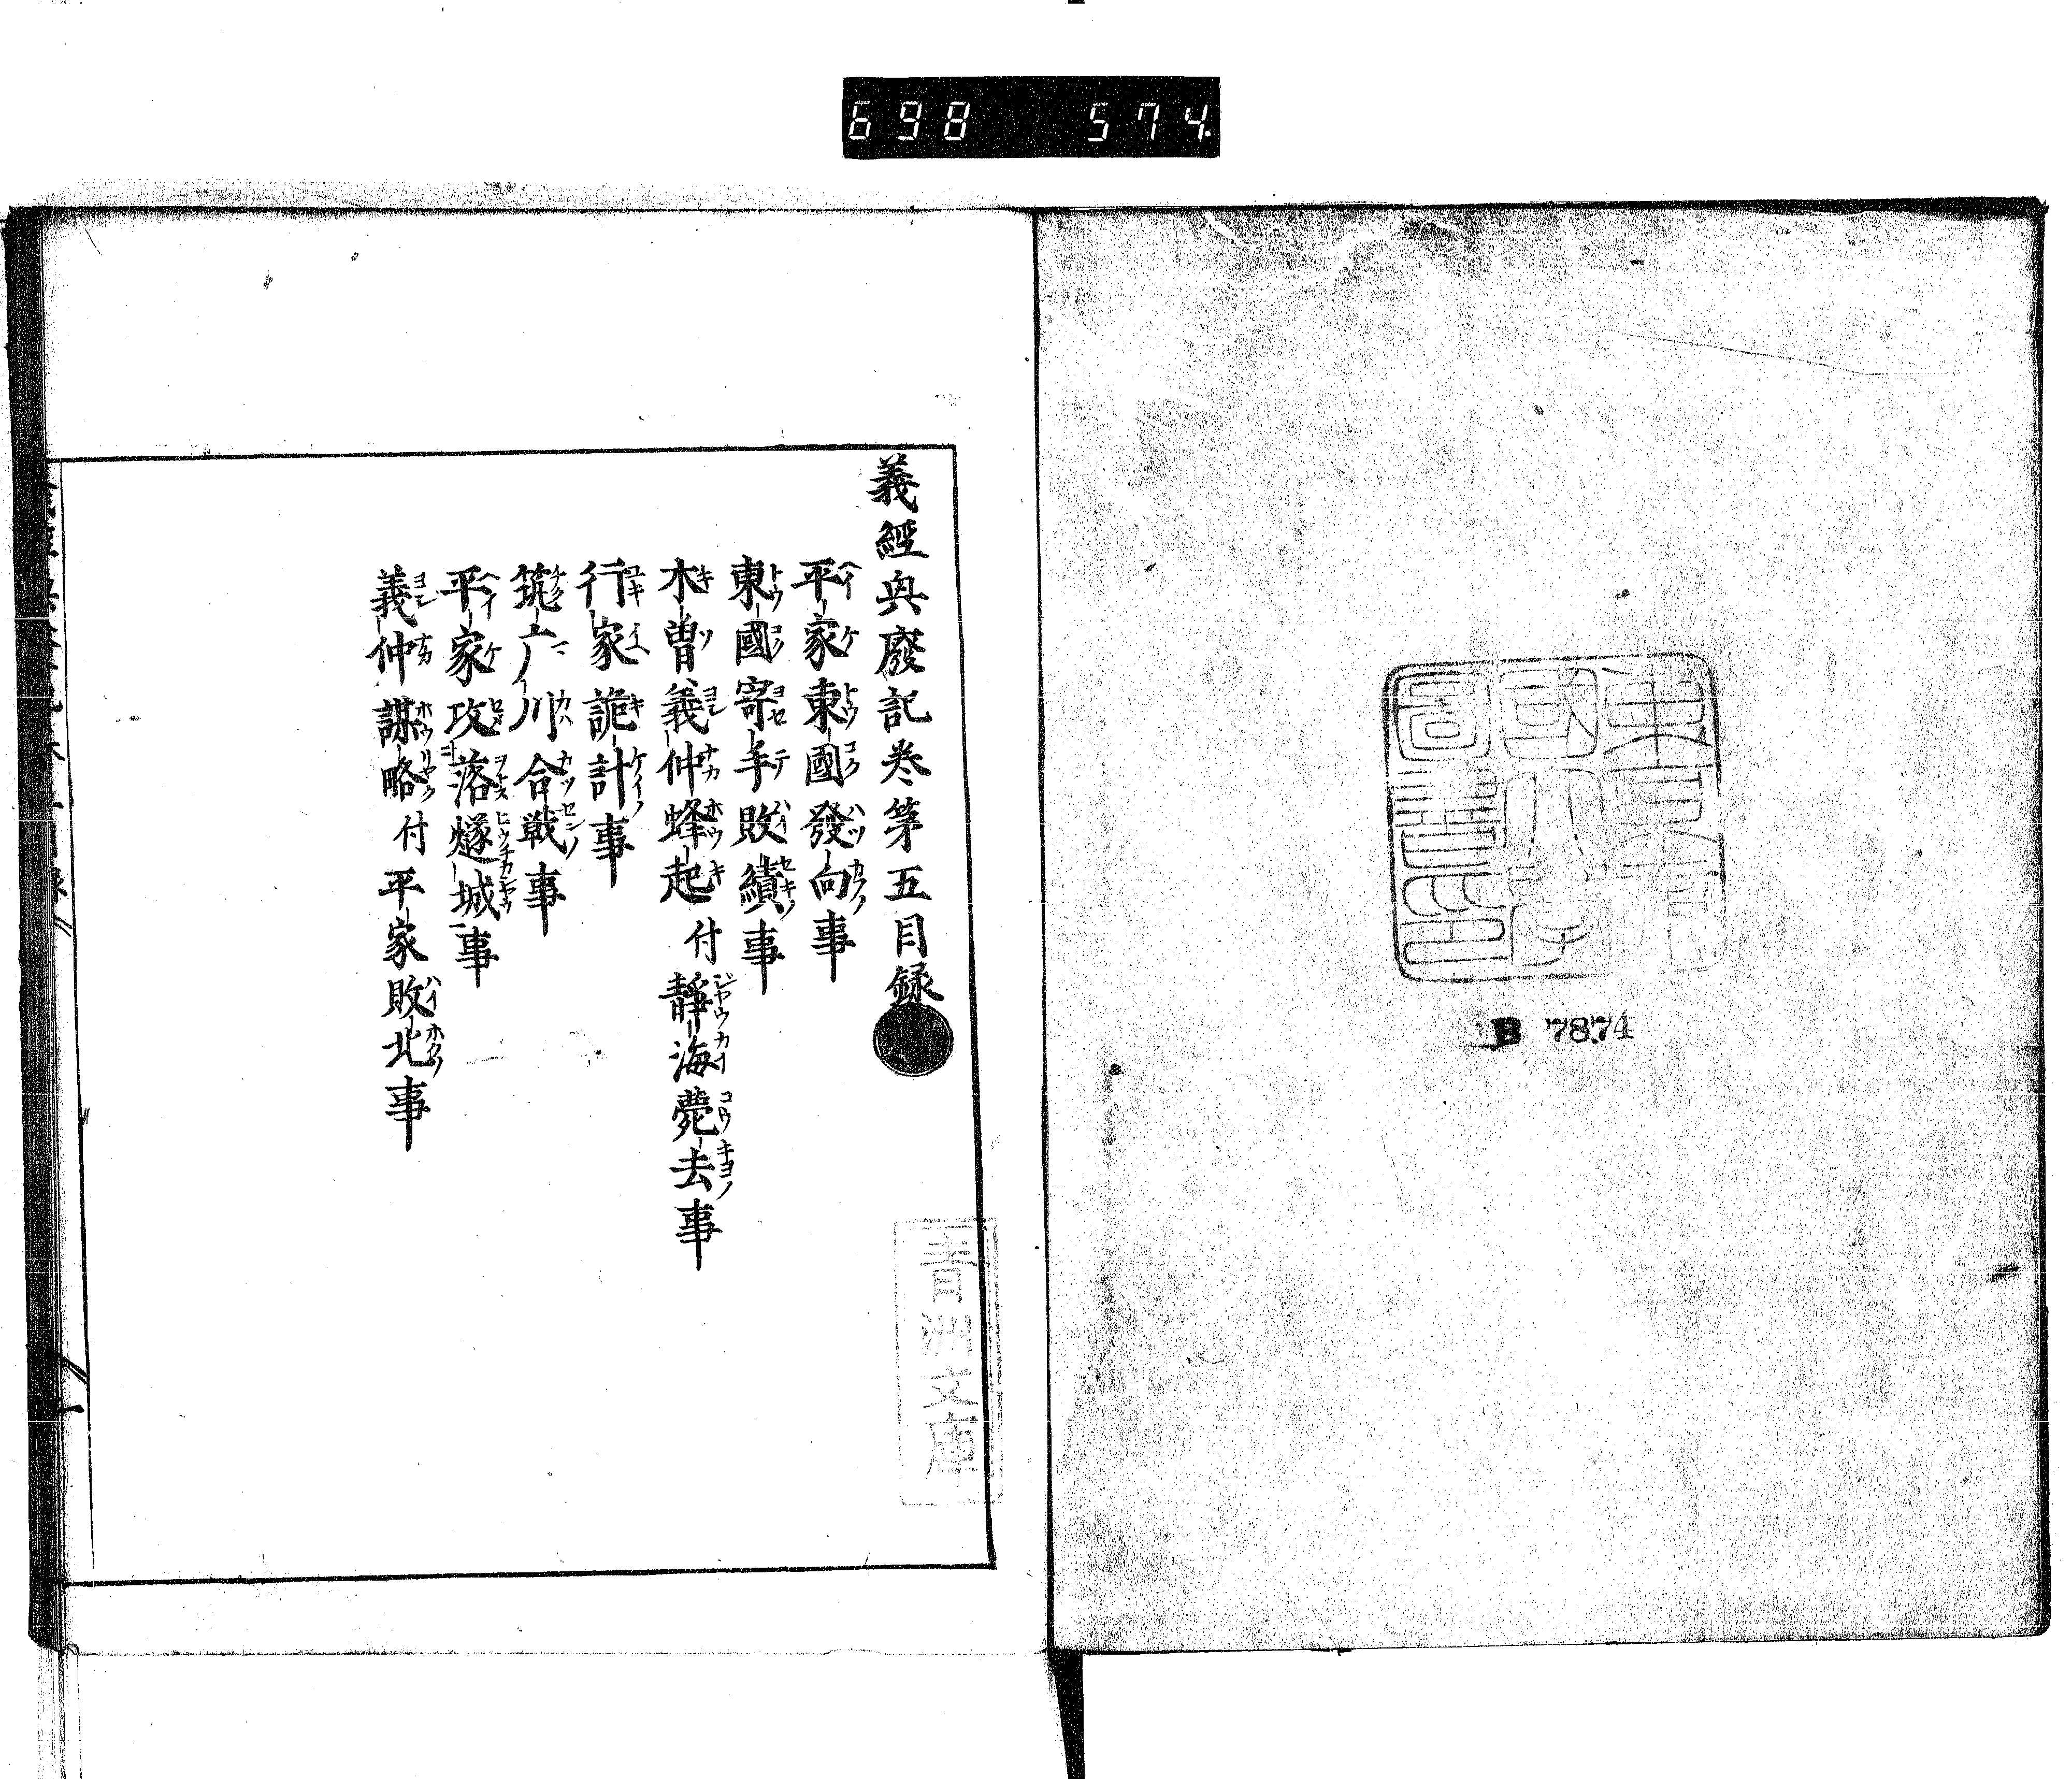 698 574
東京帝國大學圖書印
B 7874
義經興廢記卷第五目録
平家東國發向事
東國寄手敗績事
木曽義仲蜂起付靜海薨去事
行家詭計事
筑广川合戦事
平家攻落燧城事
義仲謀略付平家敗北事
青洲文庫